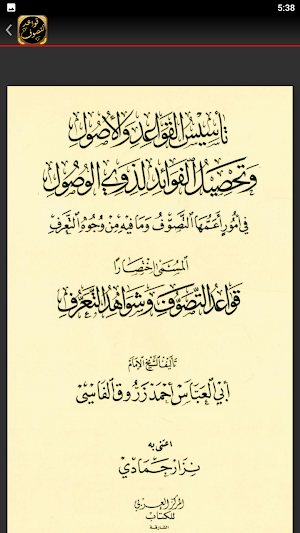 5:38
قواعد التصوف
تأسيس القواعد والأصول
وتحصيل الفوائد لذوي الوصول
في أمور أعمها التصوف وما فيه من وجوه التعرف
المسمى اختصارا
قواعد التصوف وشواهد التعرف
تأليف الشيخ الإمام
أبي العباس أحمد زروق الفاسي
اعتنى به
نزار حمادي
المركز العربي
للكتاب
الشارقة